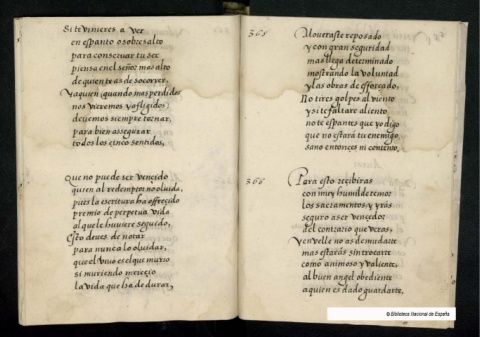 Si te vinieres a ver
en espanto o sobresalto
para conservar tu ser
piensa en el señor mas alto
de quien te as de socorrer,
Ya quien (quando mas perdidos
nos vieremos y afligidos)
devemos siempre tornar,
para bien assegurar
todos los cinco sentidos,
Que no puede ser vencido
quien al redemptor no olvida,
pues la escritura ha offrecido
premio de perpetua vida
al que le huviere seguido,
Esto deves de notar
para nunca lo olvidar,
que el vivo es el que murio
si muriendo merecio
la vida que ha de durar,
365
Moveraste reposado
y con gran seguridad
mas llega determinado
mostrando la voluntad
y las obras de esforçado,
No tires golpes al viento
y si te faltare aliento
no te espantes que yo digo
que no estará tu enemigo
sano entonces ni contento,
366
Para esto recibiras
con muy humilde temor
los sacramentos y yras
seguro a ser vencedor
del contrario que veras,
Y en velle no as de mudarte
mas estarás sin trocarte
como animoso y valiente,
al buen angel obediente
a quien es dado guardarte,
©Biblioteca Nacional de España